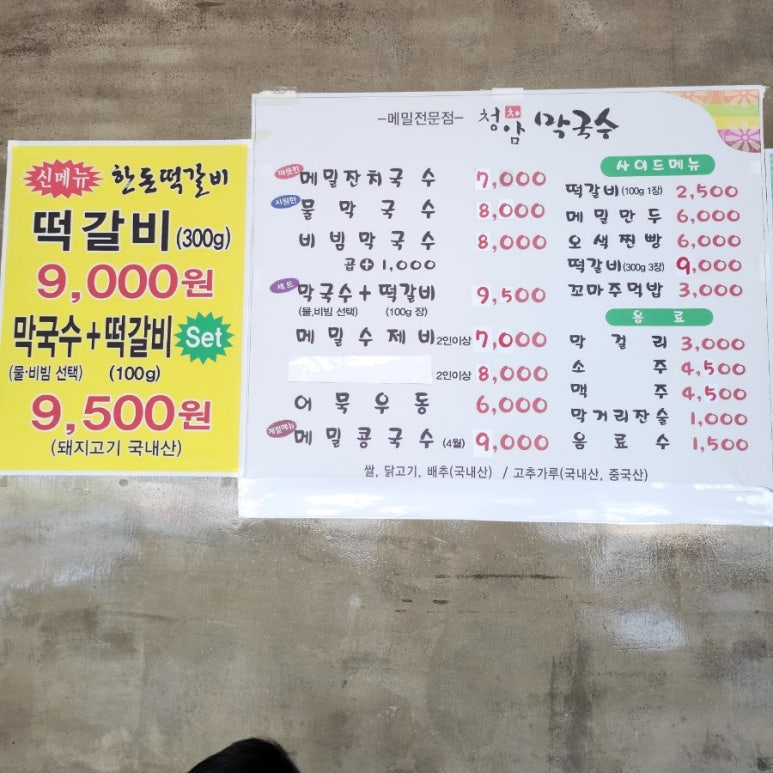 신메뉴 한돈떡갈비
떡갈비(300g)
9,000원
막국수+떡갈비 Set
(물·비빔 선택) (100g)
9,500원
(돼지고기 국내산)
-메밀전문점- 청암 막국수
따뜻한 메밀잔치국수 7,000
시원한 물막국수 8,000
비빔막국수 8,000
곱+1,000
세트 막국수+떡갈비 9,500
(물,비빔 선택) (100g 장)
메밀수제비 2인이상 7,000
2인이상 8,000
어묵우동 6,000
계절메뉴 메밀콩국수 (4월) 9,000
사이드메뉴
떡갈비(100g 1장) 2,500
메밀만두 6,000
오색찐빵 6,000
떡갈비(300g 3장) 9,000
꼬마주먹밥 3,000
음료
막걸리 3,000
소주 4,500
맥주 4,500
막거리잔술 1,000
음료수 1,500
쌀, 닭고기, 배추(국내산) / 고추가루(국내산, 중국산)